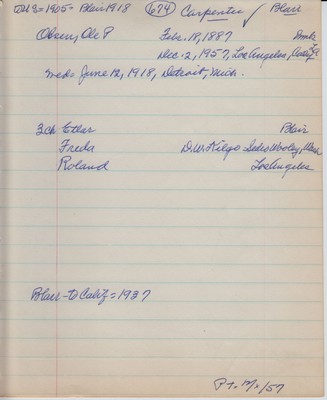 1905 = Blair 1918 (674) Carpenter ✓ Blair
Olsen, Ole P Feb. 18, 1887
Dec. 2, 1957, Los Angeles, Calif
meds June 12, 1918, Detroit, Mich.
3 ch Blair
Freda D.W. Kilgo Sedro Wooley, Wash
Roland Los Angeles
Blair - to Calif = 1937